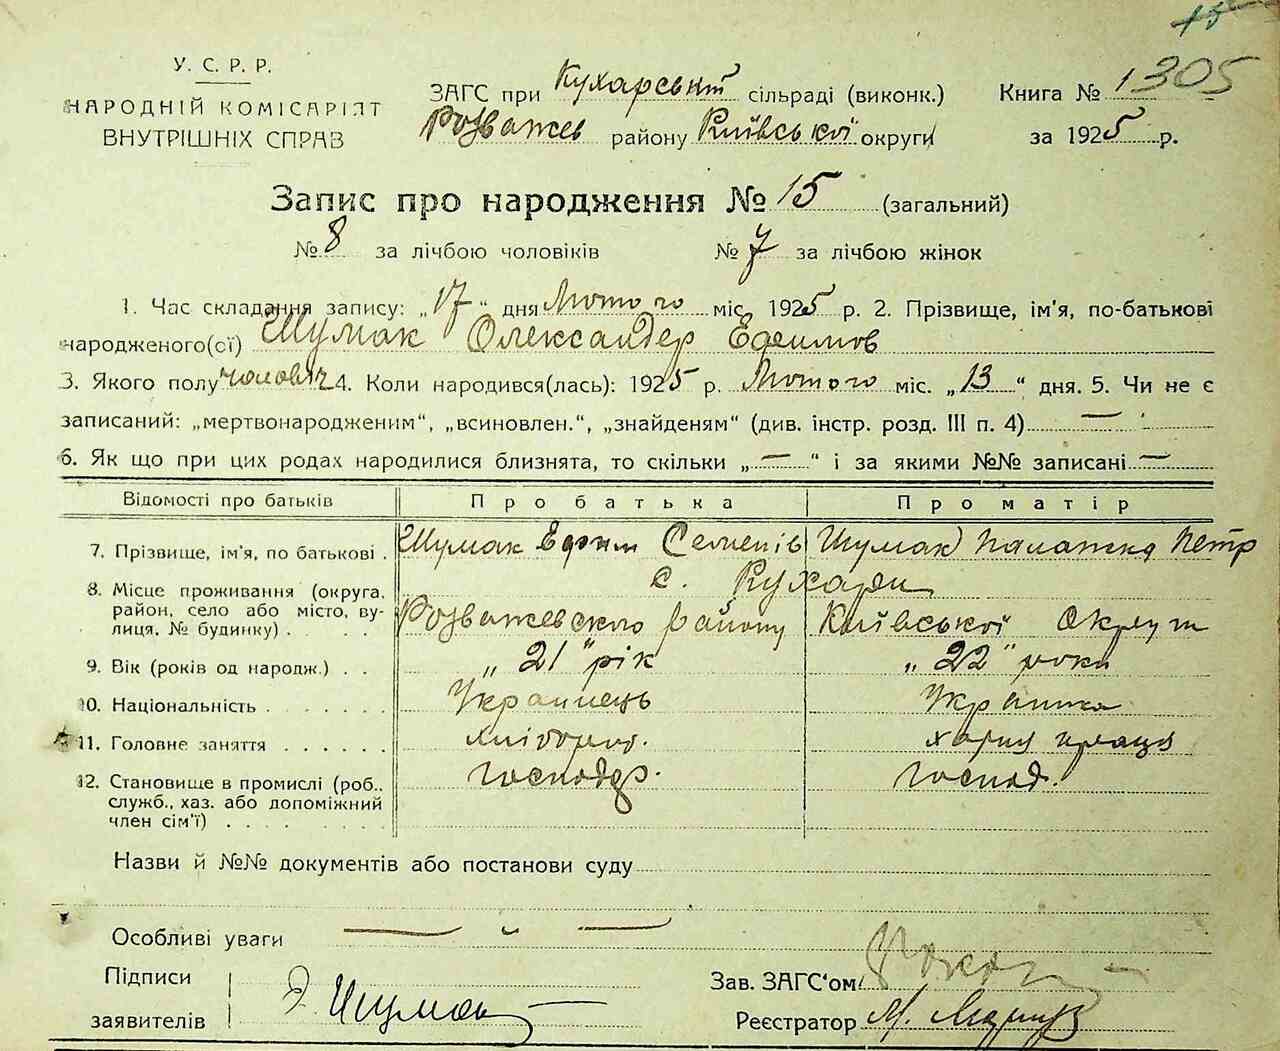 15
У. С. Р. Р.
НАРОДНІЙ КОМІСАРІЯТ
ВНУТРІШНІХ СПРАВ
ЗАГС при Кухарській сільраді (виконк.)
Розважев району Київської округи
Книга № 1305
за 1925 р.
Запис про народження № 15 (загальний)
№ 8 за лічбою чоловіків № 7 за лічбою жінок
1. Час складання запису: „17“ дня Лютого міс. 1925 р. 2. Прізвище, ім'я, по-батькові
народженого(ої) Шумак Олександер Ефимов
3. Якого полу чоловіч 4. Коли народився(лась): 1925 р. Лютого міс. „13“ дня. 5. Чи не є
записаний: „мертвонародженим“, „всиновлен.“, „знайденям“ (див. інстр. розд. III п. 4) —
6. Як що при цих родах народилися близнята, то скільки „—“ і за якими №№ записані —
Відомості про батьків Про батька Про матір
7. Прізвище, ім'я, по батькові . Шумак Ефим Семенів Шумак Палажка Петр
8. Місце проживання (округа, район, село або місто, вулиця, № будинку) . . . с. Кухари
Розважевского району Київської Округи
9. Вік (років од народж.) . . „21“ рік „22“ роки
10. Національність . . . . . . Украинець Украинка
11. Головне заняття . . . . . . хлібороб. хатня праця
12. Становище в промислі (роб., служб., хаз. або допоміжний член сім'ї) . . . . . . . . господар. господ.
Назви й №№ документів або постанови суду
Особливі уваги — „ —
Підписи
заявителів Шумак
Зав. ЗАГС'ом
Реєстратор М.